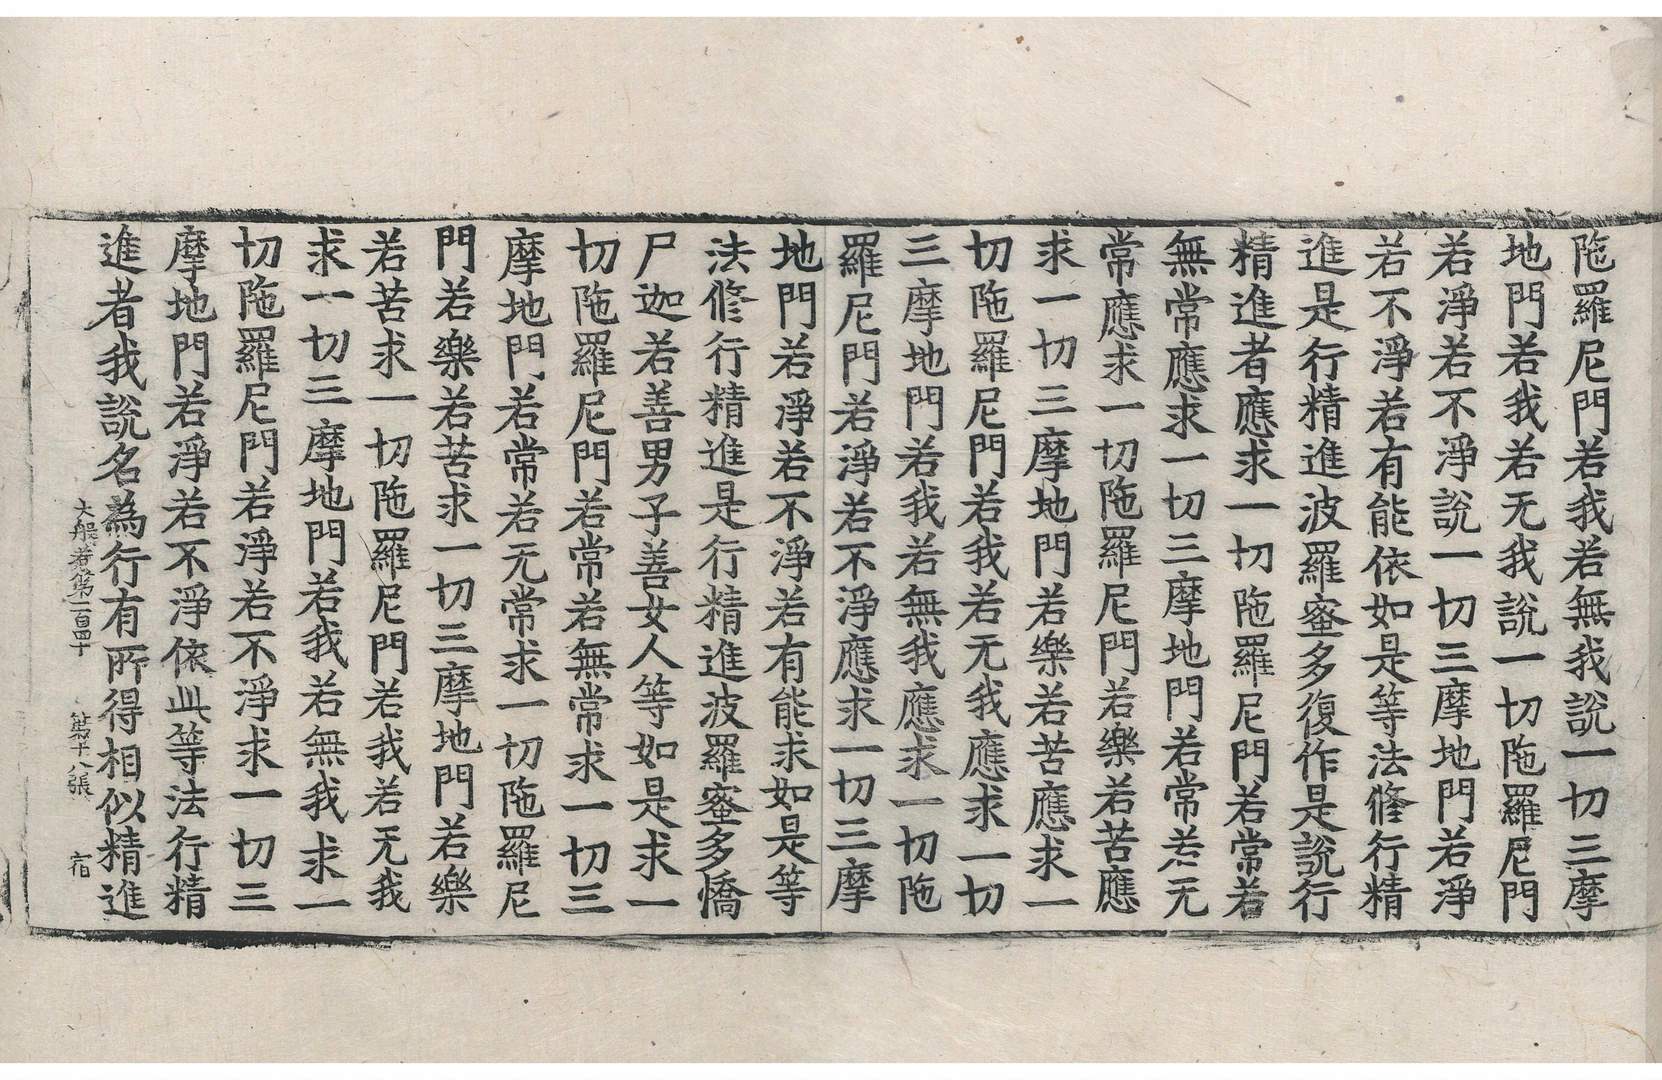 陁羅尼門若我若無我說一切三摩
地門若我若无我說一切陁羅尼門
若淨若不淨說一切三摩地門若淨
若不淨若有能依如是等法修行精
進是行精進波羅蜜多復作是說行
精進者應求一切陁羅尼門若常若
無常應求一切三摩地門若常若无
常應求一切陁羅尼門若樂若苦應
求一切三摩地門若樂若苦應求一
切陁羅尼門若我若无我應求一切
三摩地門若我若無我應求一切陁
羅尼門若淨若不淨應求一切三摩
地門若淨若不淨若有能求如是等
法修行精進是行精進波羅蜜多憍
尸迦若善男子善女人等如是求一
切陁羅尼門若常若無常求一切三
摩地門若常若无常求一切陁羅尼
門若樂若苦求一切三摩地門若樂
若苦求一切陁羅尼門若我若无我
求一切三摩地門若我若無我求一
切陁羅尼門若淨若不淨求一切三
摩地門若淨若不淨依此等法行精
進者我說名為行有所得相似精進
大般若第一百四十　第十八張　宿